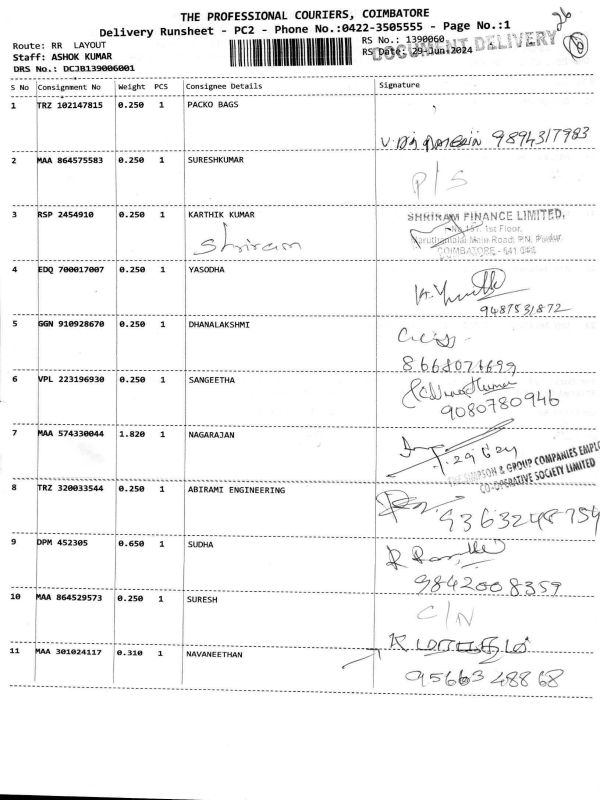 THE PROFESSIONAL COURIERS, COIMBATORE
Delivery Runsheet - PC2 - Phone No.:0422-3505555 - Page No.:1
26
Route: RR LAYOUT
RS No.: 1390060
DOCUMENT DELIVERY
Staff: ASHOK KUMAR
RS Date: 29-Jun-2024
DRS No.: DCJB139006001
S No Consignment No Weight PCS Consignee Details Signature
1 TRZ 102147815 0.250 1 PACKO BAGS
9894317983
2 MAA 864575583 0.250 1 SURESHKUMAR
P/S
3 RSP 2454910 0.250 1 KARTHIK KUMAR
SHRIRAM FINANCE LIMITED,
No.157, 1st Floor,
Shriram
Maruthamalai Main Road, P.N. Pudur,
COIMBATORE - 641
4 EDQ 700017007 0.250 1 YASODHA
9487531872
5 GGN 910928670 0.250 1 DHANALAKSHMI
8668071699
6 VPL 223196930 0.250 1 SANGEETHA
9080780946
7 MAA 574330044 1.820 1 NAGARAJAN
29 6 24
THE SIMPSON & GROUP COMPANIES EMPLO
CO-OPERATIVE SOCIETY LIMITED
8 TRZ 320033544 0.250 1 ABIRAMI ENGINEERING
9363248754
9 DPM 452305 0.650 1 SUDHA
9842008359
10 MAA 864529573 0.250 1 SURESH
C/N
11 MAA 301024117 0.310 1 NAVANEETHAN
9566348868